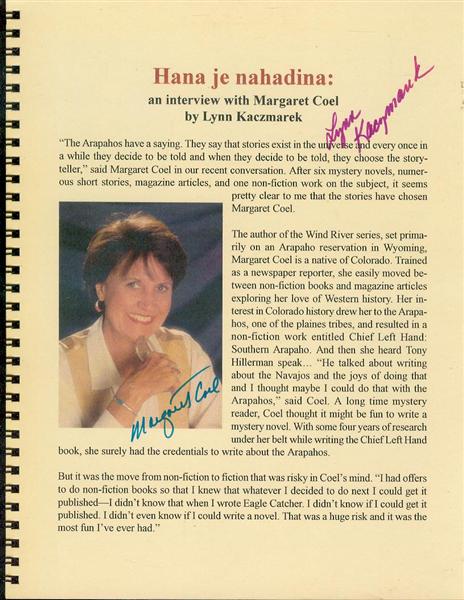 Hana je nahadina:
an interview with Margaret Coel
by Lynn Kaczmarek
Lynn
Kaczmarek
“The Arapahos have a saying. They say that stories exist in the universe and every once in
a while they decide to be told and when they decide to be told, they choose the story-
teller,” said Margaret Coel in our recent conversation. After six mystery novels, numer-
ous short stories, magazine articles, and one non-fiction work on the subject, it seems
pretty clear to me that the stories have chosen
Margaret Coel.
The author of the Wind River series, set prima-
rily on an Arapaho reservation in Wyoming,
Margaret Coel is a native of Colorado. Trained
as a newspaper reporter, she easily moved be-
tween non-fiction books and magazine articles
exploring her love of Western history. Her in-
terest in Colorado history drew her to the Arapa-
hos, one of the plaines tribes, and resulted in a
non-fiction work entitled Chief Left Hand:
Southern Arapaho. And then she heard Tony
Hillerman speak… “He talked about writing
about the Navajos and the joys of doing that
and I thought maybe I could do that with the
Arapahos,” said Coel. A long time mystery
reader, Coel thought it might be fun to write a
mystery novel. With some four years of research
under her belt while writing the Chief Left Hand
book, she surely had the credentials to write about the Arapahos.
Margaret Coel
But it was the move from non-fiction to fiction that was risky in Coel’s mind. “I had offers
to do non-fiction books so that I knew that whatever I decided to do next I could get it
published—I didn’t know that when I wrote Eagle Catcher. I didn’t know if I could get it
published. I didn’t even know if I could write a novel. That was a huge risk and it was the
most fun I’ve ever had.”